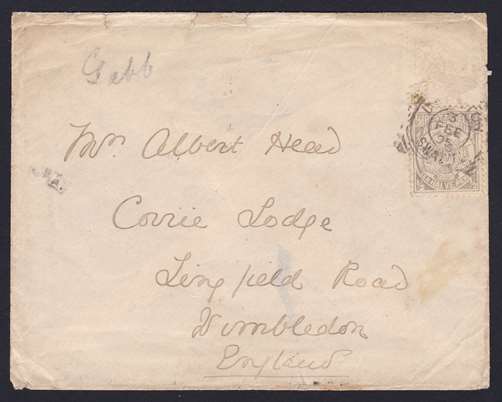 Gabb
Mr. Albert Head
Corrie Lodge
Lingfield Road
Wimbledon
England
3
FEB
95